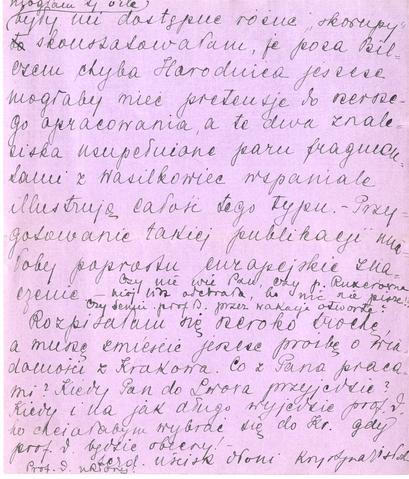 były mi dostępne różne „skorupy"
to skonstatowałam, że poza Bil-
czem chyba Horodnica jeszcze
mogłaby mieć pretensje do szersze-
go opracowania, a te dwa znale-
ziska uzupełnione paru fragmen-
tami z Wasilkowiec wspaniale
illustrują całość tego typu. - Przy-
gotowanie takiej publikacji mia-
łoby poprostu europejskie zna-
czenie -
Czy nie wie Pan, czy p.
list odebrała, bo nic nie pisze?
Czy Semin. prof. d. przez wakacje otwarte?
Rozpisałam się szeroko trochę,
a muszę zmieścić jeszcze prośbę o wia-
domości z Krakowa. Co z Pana praca-
mi? Kiedy Pan do Lwowa przyjedzie?
Kiedy i na jak długo wyjedzie prof. d.
bo chciałabym wybrać się do Kr. gdy
prof. d. będzie obecny! -
serd. uścisk dłoni Krystyna
Prof. d.